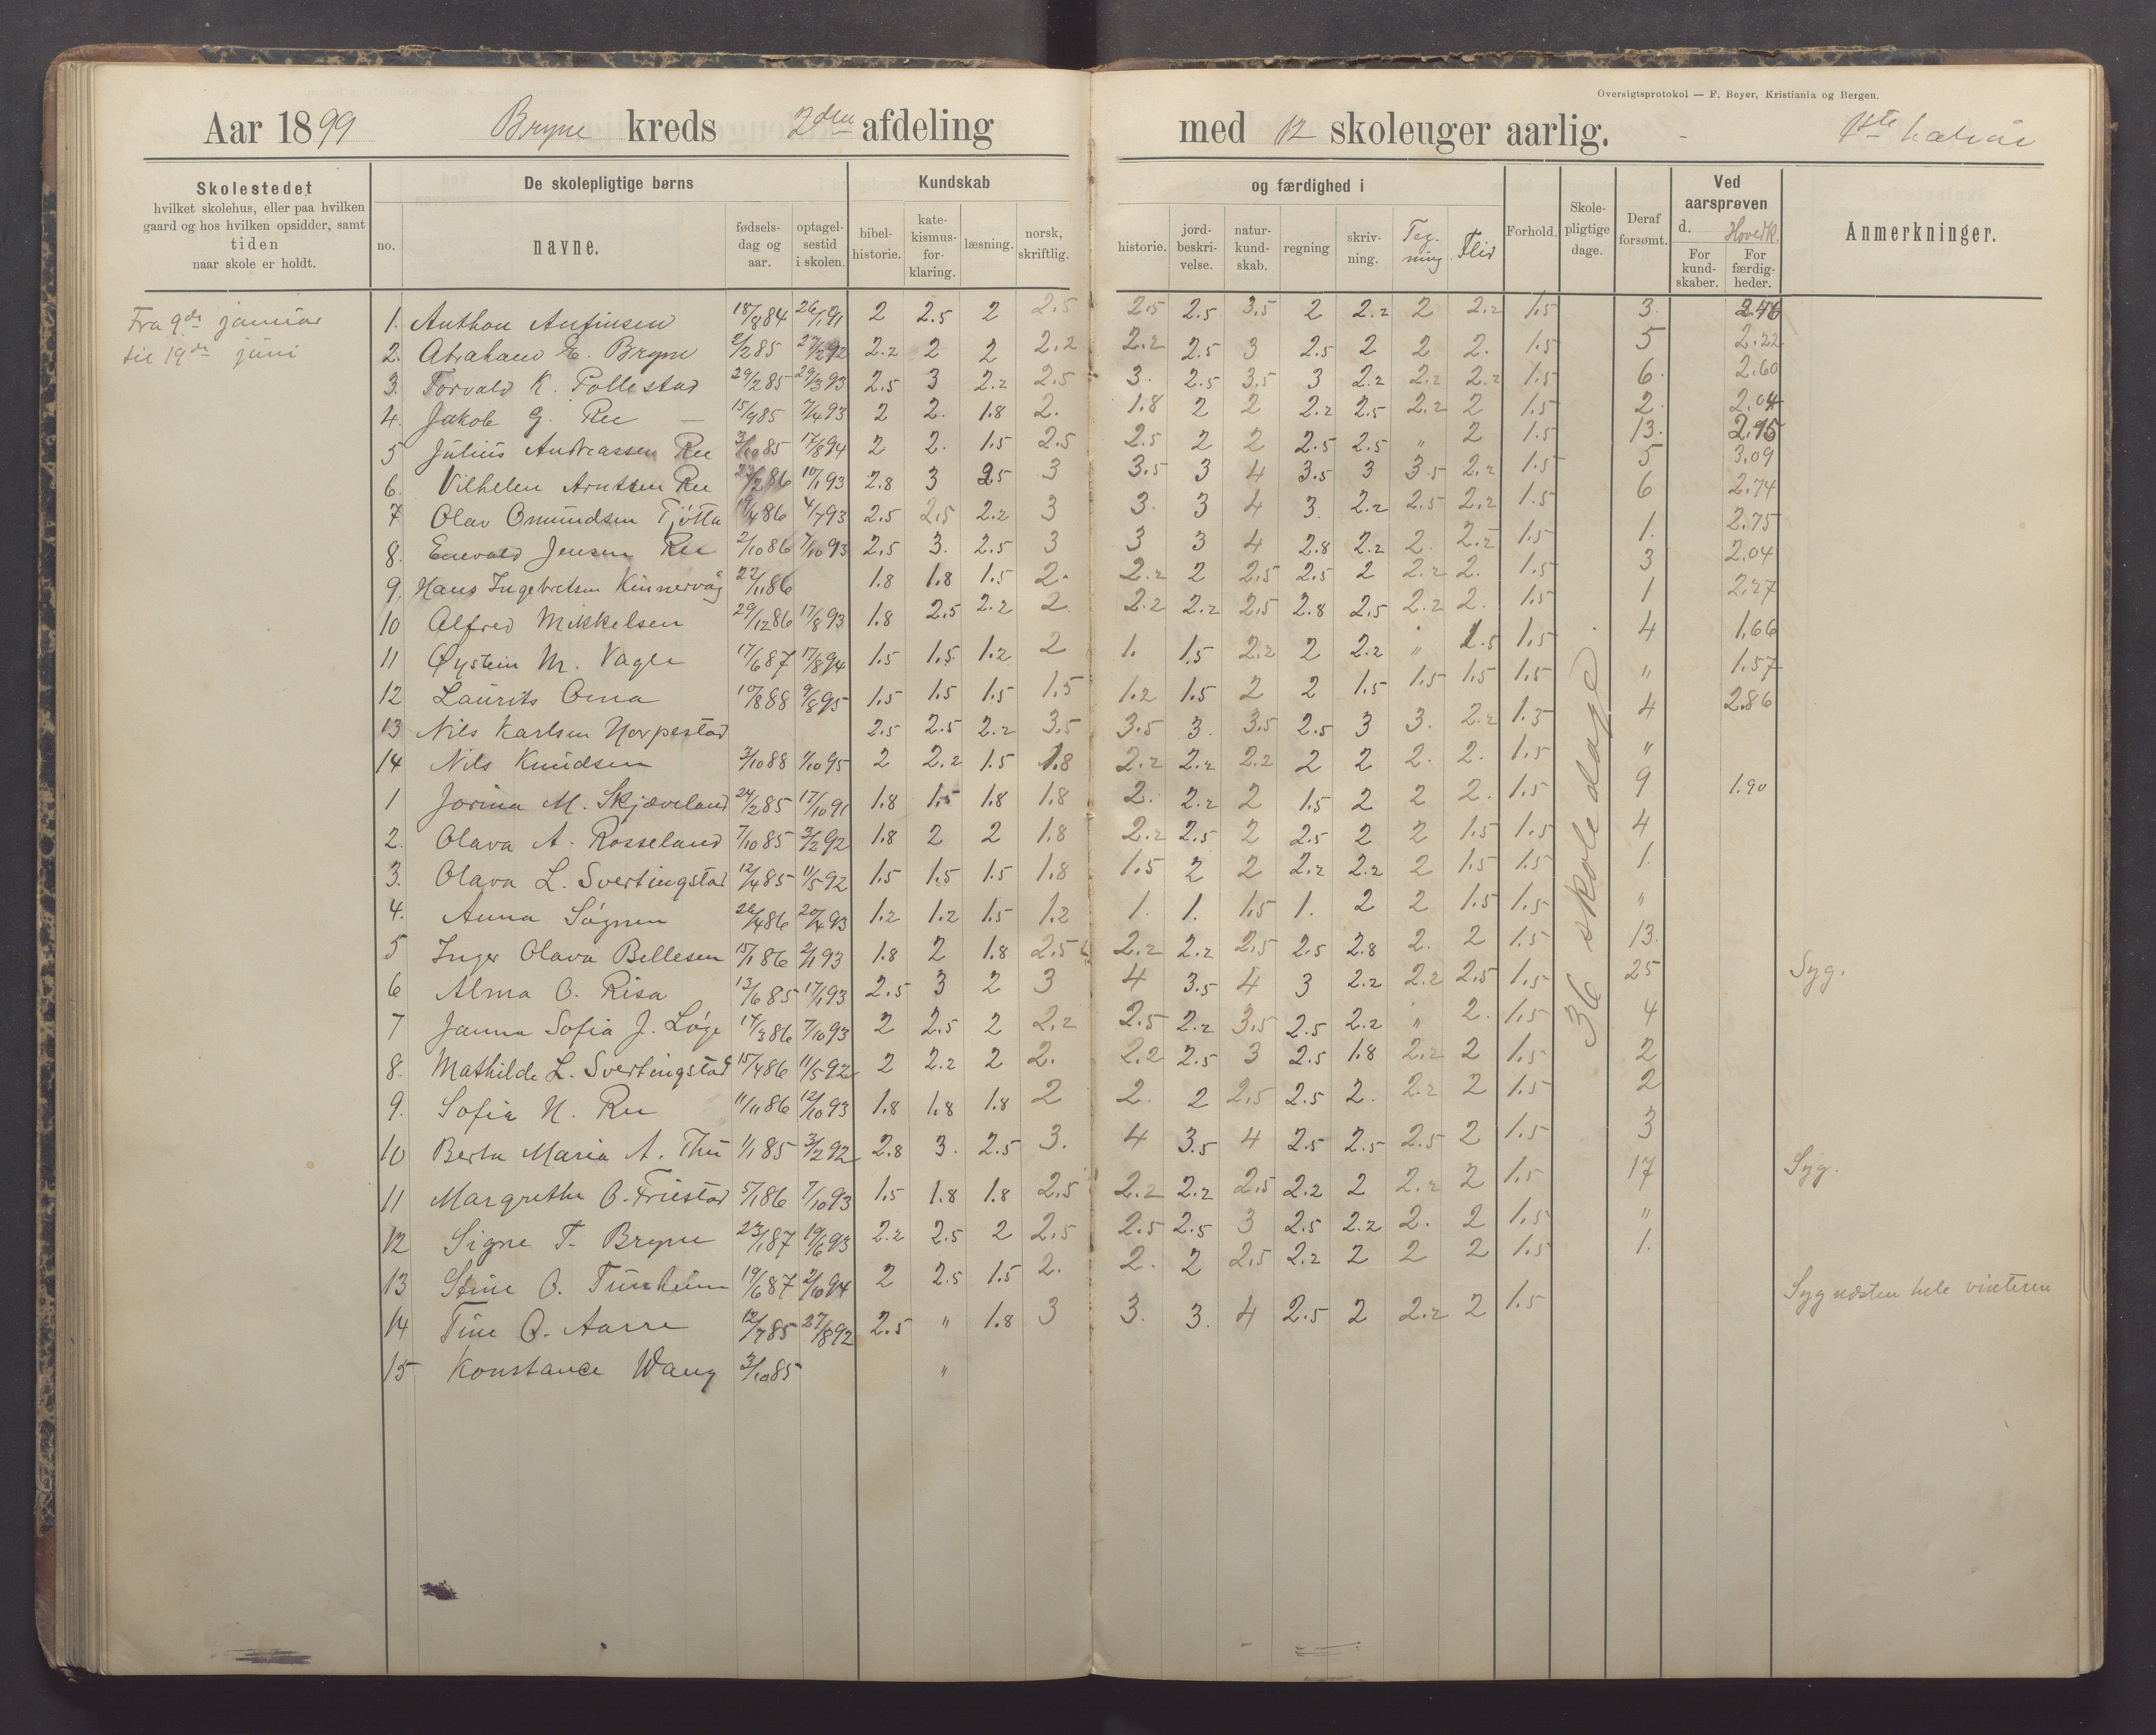 Oversigtsprotokol — F. Beyer, Kristiania og Bergen.
Aar 1899 Bryne kreds 2den afdeling med 12 skoleuger aarlig. 1ste halvår
Skolestedet hvilket skolehus, eller paa hvilken gaard og hos hvilken opsidder, samt tiden naar skole er holdt.
De skolepligtige børns
no. navne. fødselsdag og aar. optagelsestid i skolen.
Kundskab og færdighed i
bibelhistorie. katekismusforklaring. læsning. norsk, skriftlig. historie. jordbeskrivelse. naturkundskab. regning skrivning. Tegning Flid
Forhold. Skolepligtige dage. Deraf forsømt.
Ved aarsprøven d. Hovedk.
For kundskaber. For færdigheder.
Anmerkninger.
Fra 9de januar
til 19de juni
36 skoledage
1. Anthon Anfinsen 18/8 84 26/1 91 2 2.5 2 2.5 2.5 2.5 3.5 2 2.2 2 2.2 1.5 3.
2. Abraham E. Bryne 2/2 85 27/2 92 2.2 2 2 2.2 2.2 2.5 3 2.5 2 2 2. 1.5 5 2.22
3. Torvald K. Pollestad 29/2 85 29/3 93 2.5 3 2.2 2.5 3. 2.5 3.5 3 2.2 2.2 2.2 1.5 6. 2.60
4. Jakob G. Ree 15/9 85 7/4 93 2 2. 1.8 2. 1.8 2 2 2.2 2.5 2.2 2 1.5 2. 2.04
5 Julius Andreassen Ree 3/10 85 17/8 94 2 2. 1.5 2.5 2.5 2 2 2.5 2.5 " 2 1.5 13.
6. Vilhelm Arntsen Ree 2/86 10/1 93 2.8 3 2.5 3 3.5 3 4 3.5 3 3.5 2.2 1.5 5 3.09
7 Olav Omundsen Tjøtta 19/4 86 4/7 93 2.5 2.5 2.2 3 3. 3 4 3. 2.2 2.5 2.2 1.5 6 2.74
8. Enevald Jensen Ree 2/10 86 7/10 93 2.5 3. 2.5 3 3 3 4 2.8 2.2 2. 2.2 1.5 1. 2.75
9. Hans Ingebretsen Kinnervåg 22/11 86 1.8 1.8 1.5 2. 2.2 2 2.5 2.5 2 2.2 2. 1.5 3 2.04
10 Alfred Mikkelsen 29/12 86 17/8 93 1.8 2.5 2.2 2 2.2 2.2 2.5 2.8 2.5 2.2 2. 1.5 1 2.27
11 Øystein M. Vagle 17/6 87 17/8 94 1.5 1.5 1.2 2 1. 1.5 2.2 2 2.2 " 1.5 1.5 4 1.66
12 Laurits Oma 10/8 88 9/8 95 1.5 1.5 1.5 1.5 1.2 1.5 2 2 1.5 1.5 1.5 1.5 " 1.57
13 Nils Karlsen Norpestad 2.5 2.5 2.2 3.5 3.5 3. 3.5 2.5 3 3. 2.2 1.5 4 2.86
14 Nils Knudsen 3/10 88 1/10 95 2 2.2 1.5 1.8 2.2 2.2 2.2 2 2 2. 2. 1.5 "
1 Jorina M. Skjæveland 24/2 85 17/10 91 1.8 1.5 1.8 1.8 2. 2.2 2 1.5 2 2 2. 1.5 9 1.90
2. Olava A. Rosseland 7/10 85 3/2 92 1.8 2 2 1.8 2.2 2.5 2 2.5 2 2 1.5 1.5 4
3. Olava L. Svertingstad 12/4 85 11/5 92 1.5 1.5 1.5 1.8 1.5 2 2 2.2 2.2 2 1.5 1.5 1.
4. Anna Søgnen 26/4 86 20/4 93 1.2 1.2 1.5 1.2 1. 1. 1.5 1. 2 2 1.5 1.5 "
5 Inger Olava Bellesen 15/1 86 2/1 93 1.8 2 1.8 2.5 2.2 2.2 2.5 2.5 2.8 2. 2 1.5 13.
6 Alma O. Risa 13/6 85 17/1 93 2.5 3 2 3 4 3.5 4 3 2.2 2.2 2.5 1.5 25 Syg.
7 Janna Sofia J. Løge 14/3 86 7/10 93 2 2.5 2 2.2 2.5 2.2 3.5 2.5 2.2 " 2. 1.5 4
8. Mathilde L. Svertingstad 15/4 86 11/5 92 2 2.2 2 2. 2.2 2.5 3 2.5 1.8 2.2 2 1.5 2
9. Sofia N. Ree 11/11 86 12/10 93 1.8 1.8 1.8 2 2. 2 2.5 2.5 2. 2.2 2 1.5 2
10 Berta Maria A. Thu 1/1 85 3/2 92 2.8 3. 2.5 3. 4 3.5 4 2.5 2.5 2.5 2 1.5 3
11 Margrethe O. Friestad 5/1 86 7/10 93 1.5 1.8 1.8 2.5 2.2 2.2 2.5 2.2 2 2.2 2 1.5 17 Syg.
12 Signe T. Bryne 23/1 87 19/6 93 2.2 2.5 2 2.5 2.5 2.5 3 2.5 2.2 2. 2 1.5 "
13 Stine O. Tunheim 19/6 87 2/10 94 2 2.5 1.5 2. 2. 2 2.5 2.2 2 2 2 1.5 1.
14 Tine O. Aarre 12/7 85 27/8 92 2.5 " 1.8 3 3. 3. 4 2.5 2 2.2 2 1.5 Syg næsten hele vinteren
15 Konstance Wang 3/10 85 "